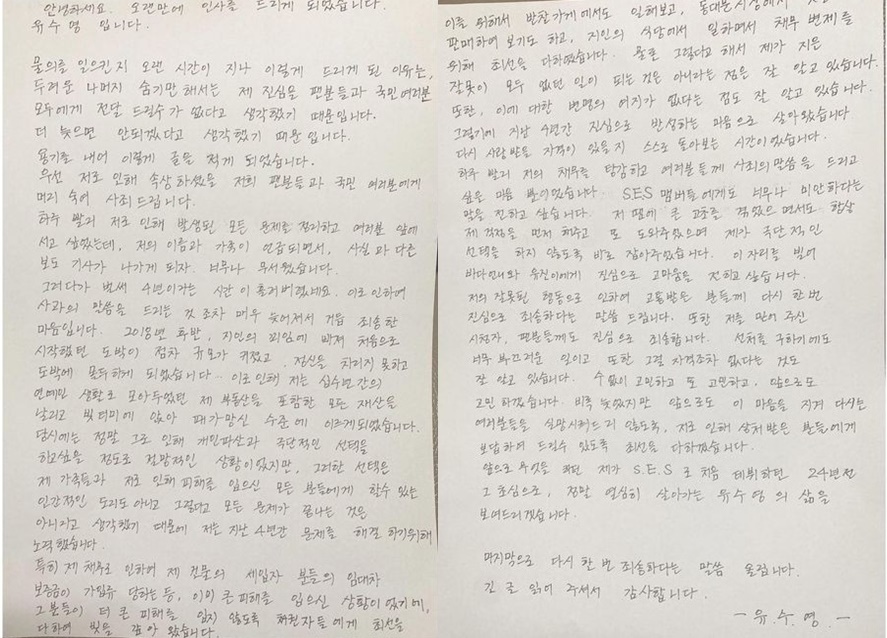 안녕하세요. 오랜만에 인사를 드리게 되었습니다.
유수영 입니다.
물의를 일으킨지 오랜 시간이 지나 이렇게 드리게 된 이유는,
두려운 나머지 숨기만 해서는 제 진심을 팬분들과 국민여러분
모두에게 전달 드릴수가 없다고 생각했기 때문입니다.
더 늦으면 안되겠다고 생각했기 때문입니다.
용기를 내어 이렇게 글을 적게 되었습니다.
우선 저로 인해 속상하셨을 저희 팬분들과 국민 여러분에게
머리 숙여 사죄드립니다.
하루 빨리 저로 인해 발생된 모든 문제를 정리하고 여러분 앞에
서고 싶었는데, 저의 이름과 가족이 언급되면서, 사실과 다른
보도 기사가 나가게 되자 너무나 무서웠습니다.
그러다가 벌써 4년이라는 시간이 흘러버렸네요. 이로 인하여
사과의 말씀을 드리는 것 조차 매우 늦어져서 거듭 죄송한
마음입니다. 2018년 후반, 지인의 꾀임에 빠져 처음으로
시작했던 도박이 점차 규모가 커졌고, 정신을 차리지 못하고
도박에 몰두하게 되었습니다.. 이로 인해 저는 십수년간의
연예인 생활로 모아두었던 제 부동산을 포함한 모든 재산을
날리고 빚더미에 앉아 패가망신 수준에 이르게되었습니다.
당시에는 정말 그로 인해 개인파산과 극단적인 선택을
하고싶을 정도로 절망적인 상황이었지만, 그러한 선택은
제 가족들과 저로 인해 피해를 입으신 모든 분들에게 할수 있는
인간적인 도리도 아니고 그렇다고 모든 문제가 끝나는 것은
아니라고 생각했기 때문에 저는 지난 4년간 문제를 해결 하기위해
노력했습니다.
특히 제 채무로 인하여 제 건물의 세입자 분들의 임대차
보증금이 가압류 당하는 등, 이미 큰 피해를 입으신 상황이었기에,
그분들이 더 큰 피해를 입지 않도록 채권자들에게 최선을
다하여 빚을 갚아 왔습니다.
이를 위해서 반찬가게에서도 일해보고, 동대문시장에서
판매하여 보기도 하고, 지인의 식당에서 일하면서 채무 변제를
위해 최선을 다하였습니다. 물론 그렇다고 해서 제가 지은
잘못이 모두 없던 일이 되는 것은 아니라는 점은 잘 알고 있습니다.
또한, 이에 대한 변명의 여지가 없다는 점도 잘 알고 있습니다.
그렇기에 지난 4년간 진심으로 반성하는 마음으로 살아왔습니다
다시 사랑 받을 자격이 있을지 스스로 돌아보는 시간이었습니다.
하루 빨리 저의 채무를 탕감하고 여러분들께 사죄의말씀을 드리고
싶은 마음 뿐이었습니다. S.E.S 멤버들에게도 너무나 미안하다는
말을 전하고 싶습니다. 저 때문에 큰 고초를 겪었으면서도 항상
제 걱정을 먼저 해주고 또 도와주었으며 제가 극단적인
선택을 하지 않도록 바로 잡아주었습니다. 이 자리를 빌어
바다언니와 유진이에게 진심으로 고마움을 전하고 싶습니다.
저의 잘못된 행동으로 인하여 고통받은 분들께 다시 한번
진심으로 죄송하다는 말씀 드립니다. 또한 저를 믿어 주신
시청자, 팬분들께도 진심으로 죄송합니다. 선처를 구하기에도
너무 부끄러운 일이고 또한 그럴 자격조차 없다는 것도
잘 알고 있습니다. 수없이 고민하고 또 고민하고, 앞으로도
고민 하겠습니다. 비록 늦었지만 앞으로도 이 마음을 지켜 다시는
여러분들을 실망시켜드리지 않도록, 저로 인해 상처받은 분들에게
보답하여 드릴수 있도록 최선을 다하겠습니다.
앞으로 무엇을 하던 제가 S.E.S 로 처음 데뷔하던 24년전
그 초심으로, 정말 열심히 살아가는 유수영의 삶을
보여드리겠습니다.
마지막으로 다시 한 번 죄송하다는 말씀 올립니다.
긴 글 읽어 주셔서 감사합니다.
- 유수영. -